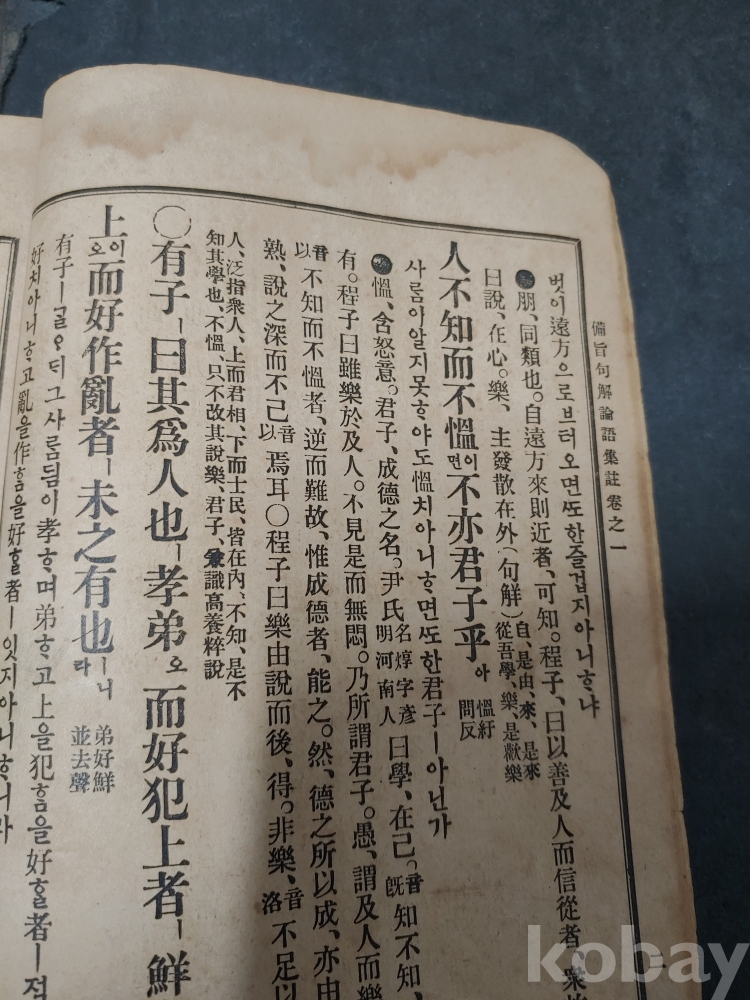 備旨句解論語集註卷之一
벗이遠方으로브터오면ᄯᅩ한즐겁지아니ᄒᆞ냐
朋、同類也。自遠方來則近者、可知。程子、曰以善及人而信從者、衆
曰說、在心。樂、主發散在外(句解)自、是由、來、是來 從吾學、樂、是歡樂
人不知而不慍이면不亦君子乎아 慍紆問反
사ᄅᆞᆷ이알지못ᄒᆞ야도慍치아니ᄒᆞ면ᄯᅩ한君子ㅣ아닌가
慍、含怒意。君子、成德之名。尹氏名焞字彦明河南人曰學、在己。知不知、音旣
有。程子曰雖樂於及人。不見是而無悶。乃所謂君子。愚、謂及人而樂
音以 不知而不慍者、逆而難故、惟成德者、能之。然、德之所以成、亦由
熟、說之深而不已音以焉耳○程子曰樂由說而後、得。非樂、音洛不足以
人、泛指衆人、上而君相、下而士民、皆在內、不知、是不
知其學也、不慍、只不改其說樂、君子、兼識高養粹說
○有子ㅣ曰其爲人也ㅣ孝弟오而好犯上者ㅣ鮮
上이오而好作亂者ㅣ未之有也ㅣ니라 弟好鮮並去聲
有子ㅣᄀᆞᆯᄋᆞᄃᆡ그사ᄅᆞᆷ됨이孝ᄒᆞ며弟ᄒᆞ고上을犯ᄒᆞᆷ을好ᄒᆞᆯ者ㅣ적
好치아니ᄒᆞ고亂을作ᄒᆞᆷ을好ᄒᆞᆯ者ㅣ잇지아니ᄒᆞ니라
kobay